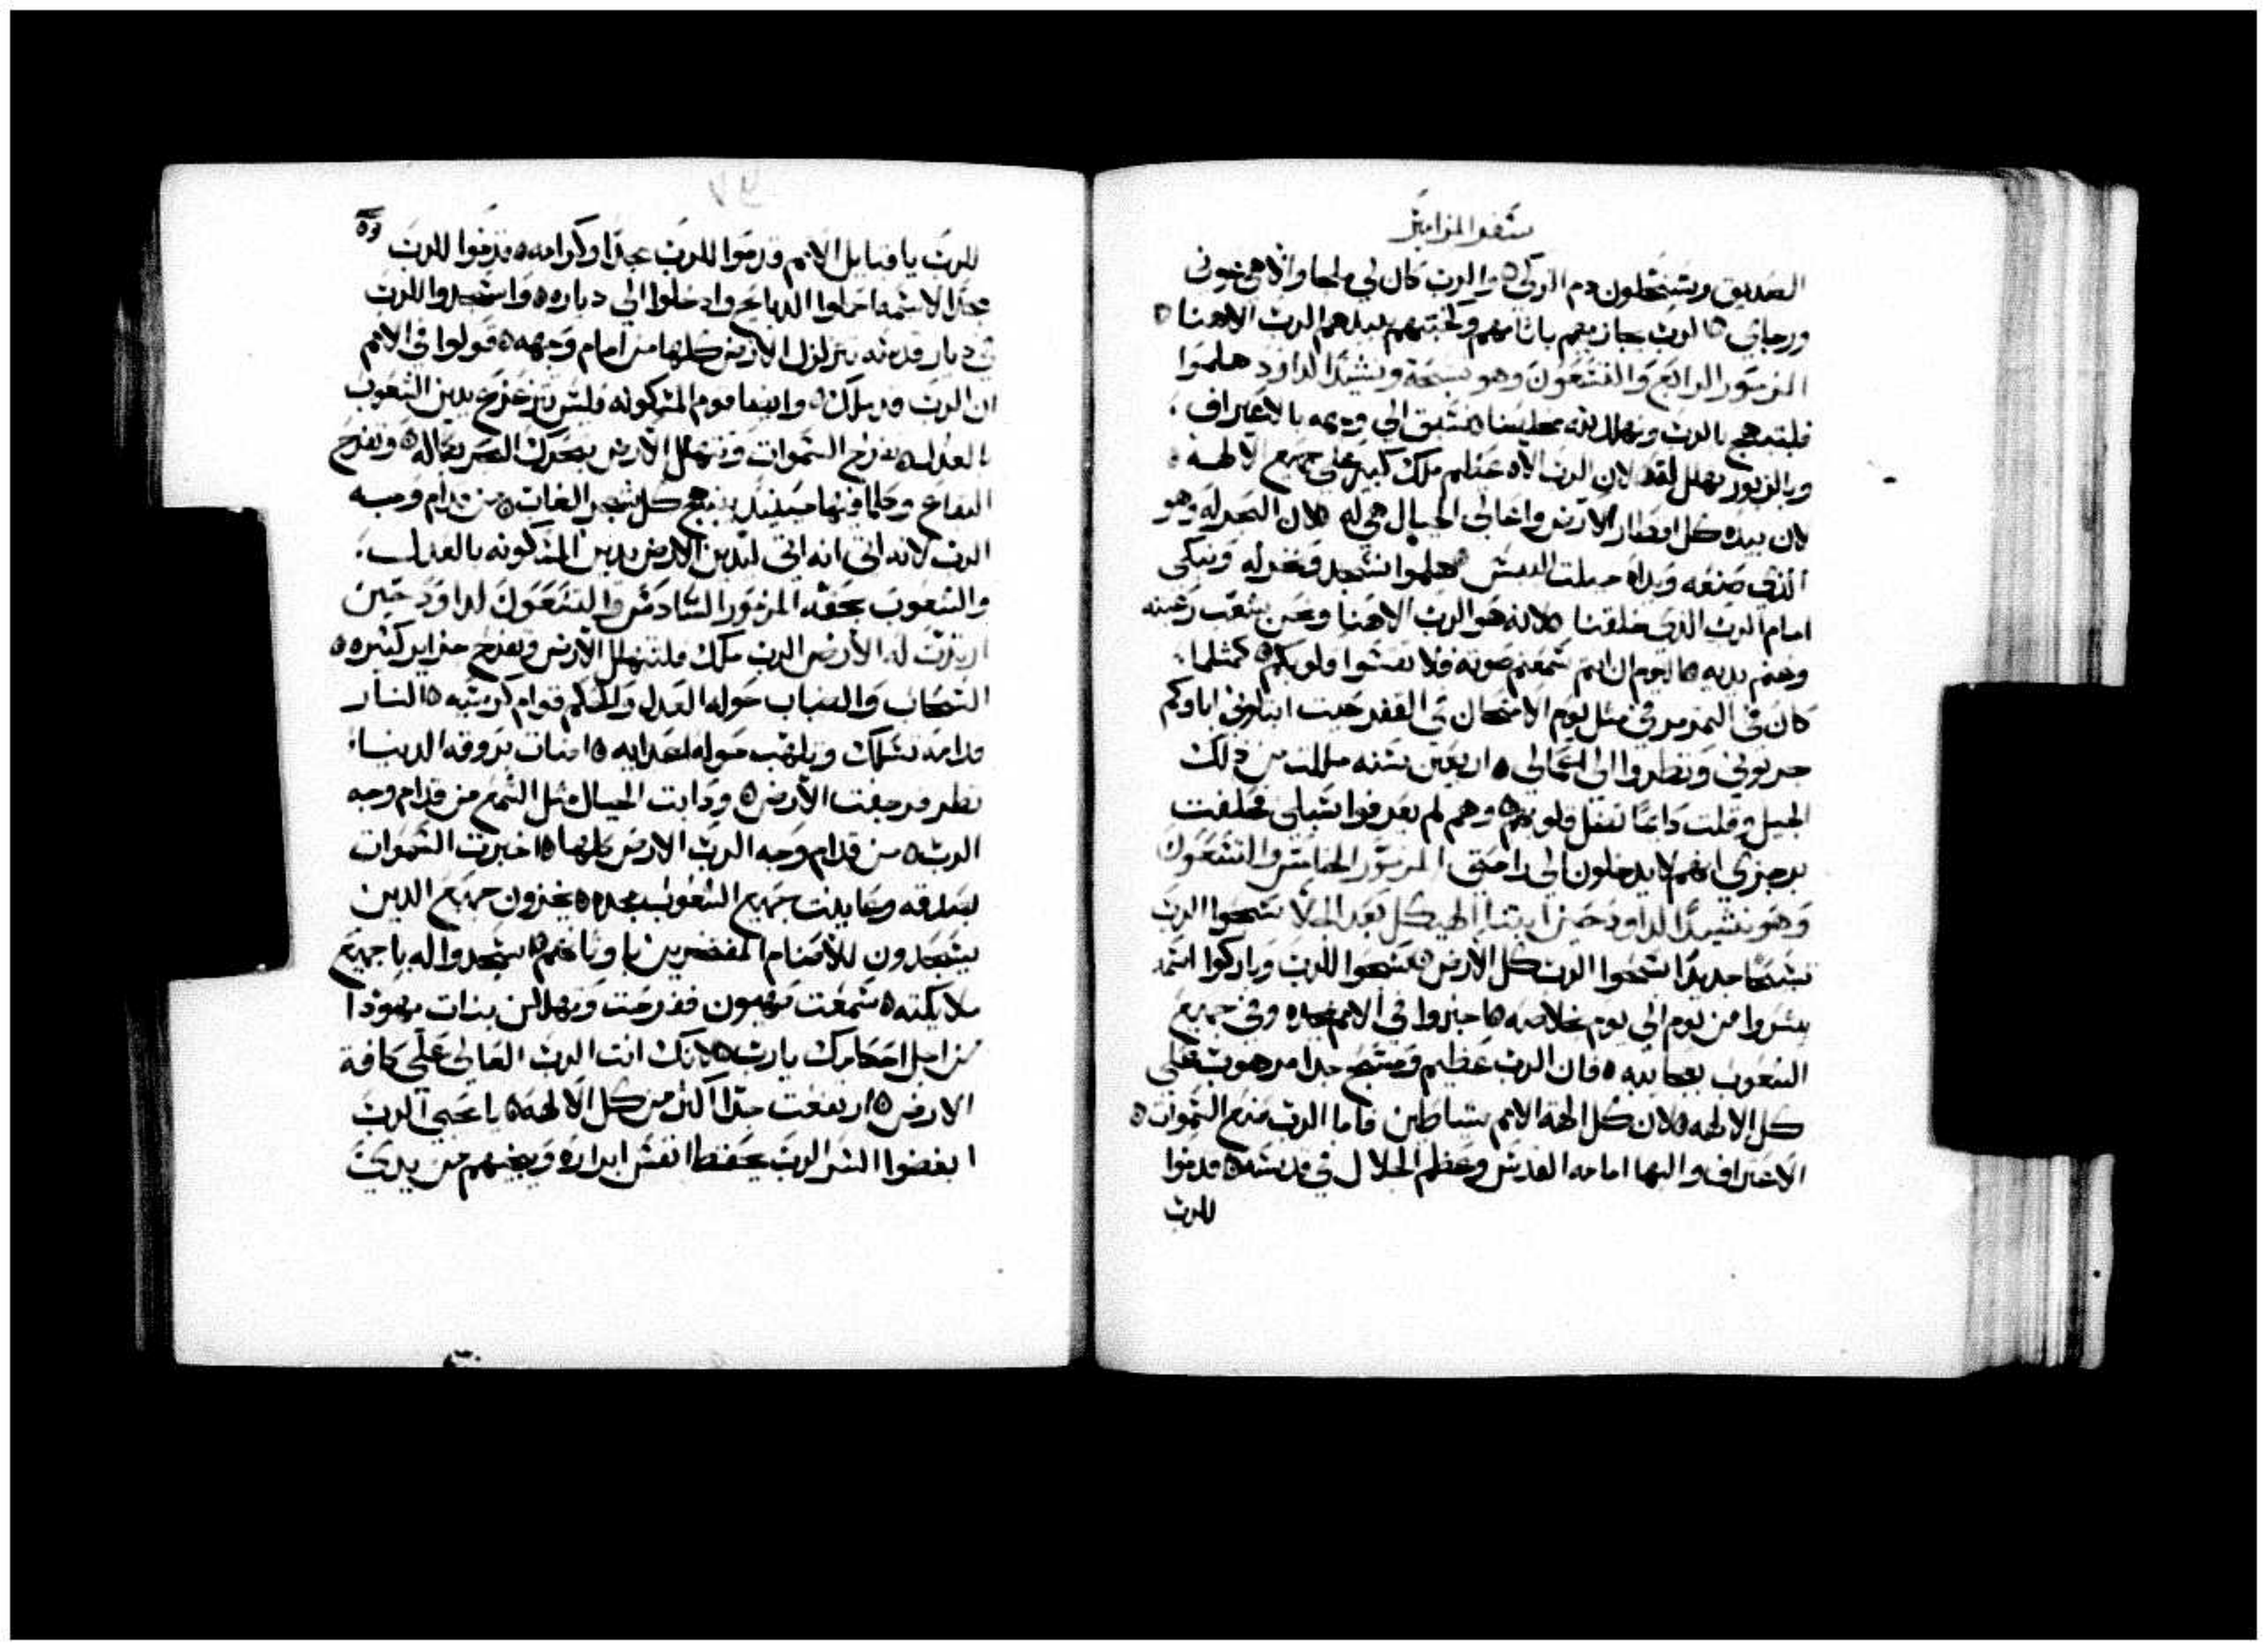 سفر المزامير
الصديق ويستحلون دم الزكي ٥ والرب كان لي ملجا والاهي عوني
ورجاي ٥ الرب يجازيهم باثامهم وكخبثهم يبيدهم الرب الاهنا ٥
المزمور الرابع والتسعون وهو تسبحة ونشيدًا لداود هلموا
فلنبتهج بالرب ونهلل لله مخلصنا نسبق الي وجهه بالاعتراف
وبالزبور نهلل له لان الرب الاه عظيم ملك كبير علي جميع الالهة ٥
لان بيده كل اقطار الارض واعالي الجبال هي له ٥ لان البحر له وهو
الذي صنعه ويداه جبلت اليبس ٥ هلموا نسجد ونخر له ونبكي
امام الرب الذي خلقنا ٥ لانه هو الرب الاهنا ونحن شعب رعيته
وغنم يديه ٥ اليوم ان انتم سمعتم صوته فلا تقسوا قلوبكم ٥ كمثلما
كان في التمرمر في مثل يوم الامتحان في القفر حيث ابتلوني اباوكم
جربوني ونظروا الي اعمالي ٥ اربعين سنه مللت من ذلك
الجيل وقلت دايمًا تضل قلوبهم ٥ وهم لم يعرفوا سبلي فحلفت
برجزي انهم لا يدخلون الي راحتي المزمور الخامس والتسعون
وهو نشيدًا لداود حين ابتنا الهيكل بعد الجلا سبحوا الرب
تسبيحًا جديدًا سبحوا الرب كل الارض ٥ سبحوا للرب وباركوا اسمه
بشروا من يوم الي يوم بخلاصه ٥ اخبروا في الامم بمجده وفي جميع
الشعوب بعجايبه ٥ فان الرب عظيم ومسبح جدا مرهوب علي
كل الالهه ٥ لان كل الهة الامم شياطين فاما الرب صنع السموات ٥
الاعتراف والبها امامه القدس وعظم الجلال في قدسه ٥ قدموا
للرب
للرب يا قبايل الامم قدموا للرب مجدًا وكرامه ٥ قدموا للرب
مجدًا لاسمه احملوا الدبايح وادخلوا الي دياره ٥ واسجدوا للرب
في ديار قدسه تتزلزل الارض كلها من امام وجهه ٥ قولوا في الامم
ان الرب قد ملك ٥ وايضا قوم المسكونه فليس تتزعزع يدين الشعوب
بالعدل ٥ تفرح السموات وتتهلل الارض يتحرك البحر بكماله ٥ وتفرح
البقاع وكلما فيها حينيد يبتهج كل شجر الغاب ٥ من قدام وجه
الرب لانه اتي انه اتي ليدين الارض يدين المسكونه بالعدل
والشعوب بحقه المزمور السادس والتسعون لداود حين
الارض الرب ملك فلتتهلل الارض وتفرح جزاير كثيره ٥
السحاب والضباب حوله العدل والحكم قوام كرسيه ٥ النار
قدامه تسلك ويلهب حوله اعدايه ٥ اضات بروقه الدنيا
نظر فرجفت الارض ٥ ودابت الجبال مثل الشمع من قدام وجه
الرب ٥ من قدام وجه الرب الارض كلها ٥ اخبرت السموات
بعدله وعاينت جميع الشعوب مجده ٥ يخزون جميع الدين
يسجدون للاصنام المفتخرين باوثانهم ٥ اسجدوا له يا جميع
ملايكته ٥ سمعت صهيون ففرحت وتهللن بنات يهودا
من اجل احكامك يا رب ٥ لانك انت الرب العالي علي كافة
الارض ٥ ارتفعت جدًا اكثر من كل الالهة ٥ يا محبي الرب
ابغضوا الشر الرب يحفظ انفس ابراره وينجيهم من يدي